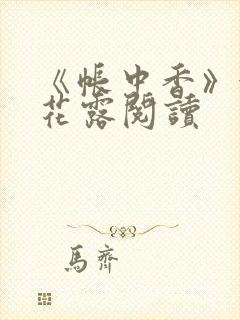 《帳中香》
花露閱讀
馬齊